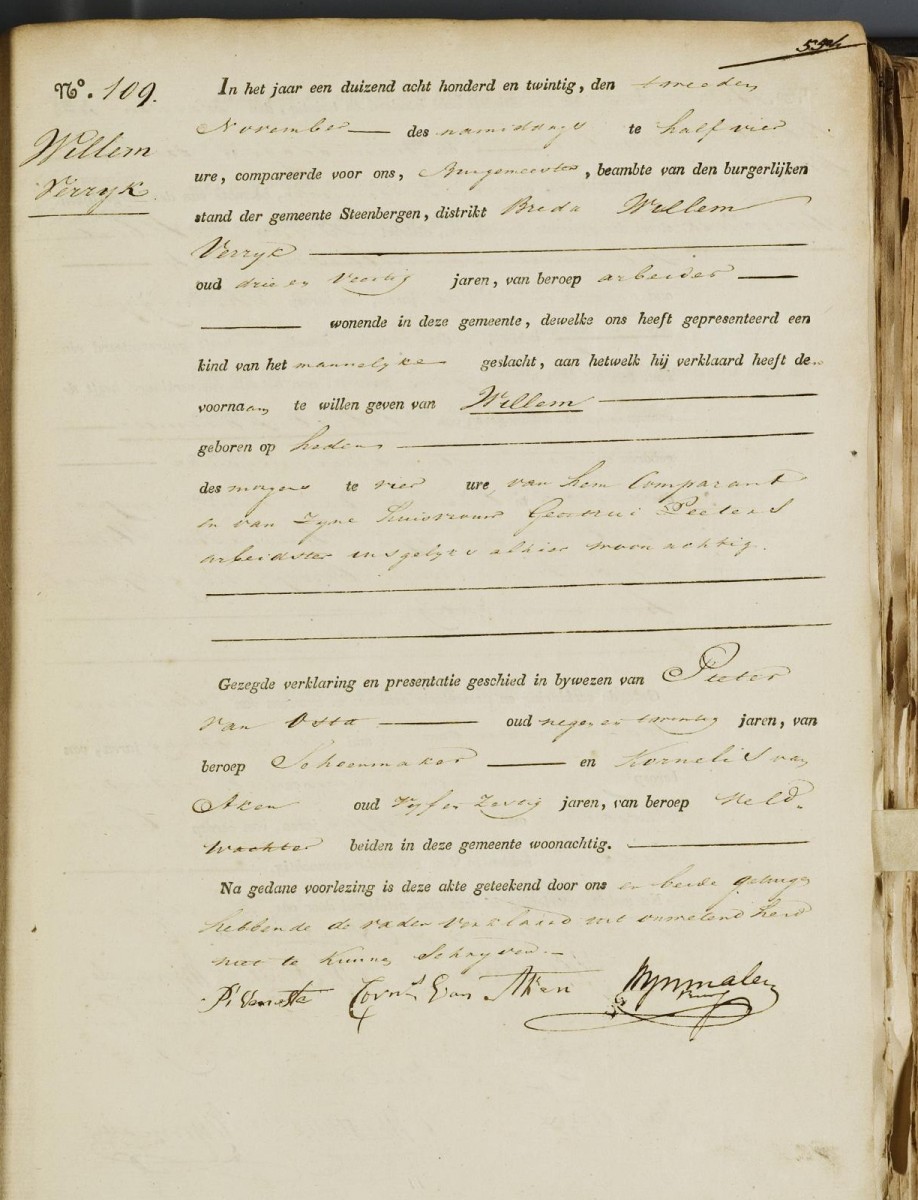 Nº. 109.
Willem
Verryk
In het jaar een duizend acht honderd en twintig, den tweeden
November des namiddags te half vier
ure, compareerde voor ons, Burgemeester, beambte van den burgerlijken
stand der gemeente Steenbergen, distrikt Breda Willem
Verryk
oud drie en Veertig jaren, van beroep arbeider
wonende in deze gemeente, dewelke ons heeft gepresenteerd een
kind van het mannelyke geslacht, aan hetwelk hij verklaard heeft de
voornaam te willen geven van Willem
geboren op heden
des morgens te vier ure, van hem Comparant
en van Zyne huisvrouw Geertrui Peeters
arbeidster insgelyks alhier woonachtig.
Gezegde verklaring en presentatie geschied in bywezen van Pieter
van Osta oud negen en twintig jaren, van
beroep Schoenmaker en Kornelis van
Aken oud Vyf en Zestig jaren, van beroep Veld-
wachter beiden in deze gemeente woonachtig.
Na gedane voorlezing is deze akte geteekend door ons en beide getuigen
hebbende de vader verklaard uit onwetendheid
niet te kunnen Schryven.
Corns Van Aken